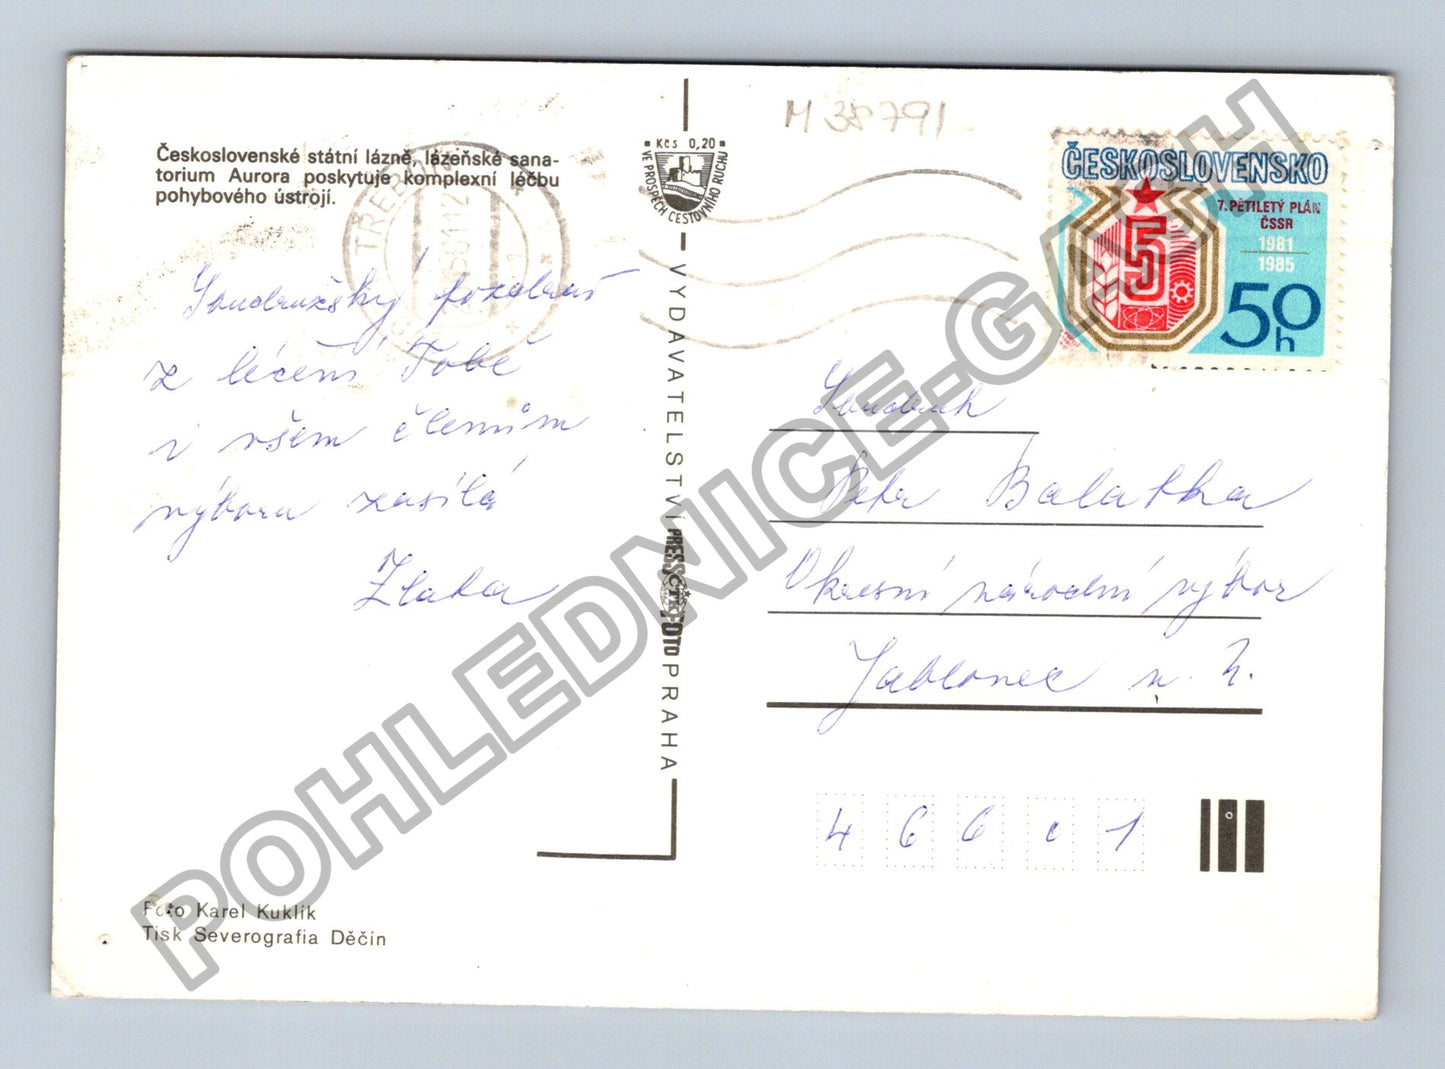 Československé státní lázně, lázeňské sana-
torium Aurora poskytuje komplexní léčbu
pohybového ústrojí.
TŘEBOŇ
Soudružský pozdrav
z léčení Tobě
i všem členům
výboru zasílá
Zlata
Foto Karel Kuklík
Tisk Severografia Děčín
Kčs 0,20
VE PROSPĚCH CESTOVNÍHO RUCHU
VYDAVATELSTVÍ PRESSFOTO PRAHA
ČTK
M 38791
ČESKOSLOVENSKO
7. PĚTILETÝ PLÁN
ČSSR
1981
1985
5
50 h
Soudruh
Petr Balatka
Okresní národní výbor
Jablonec n. N.
466 01
POHLEDNICE-GASH